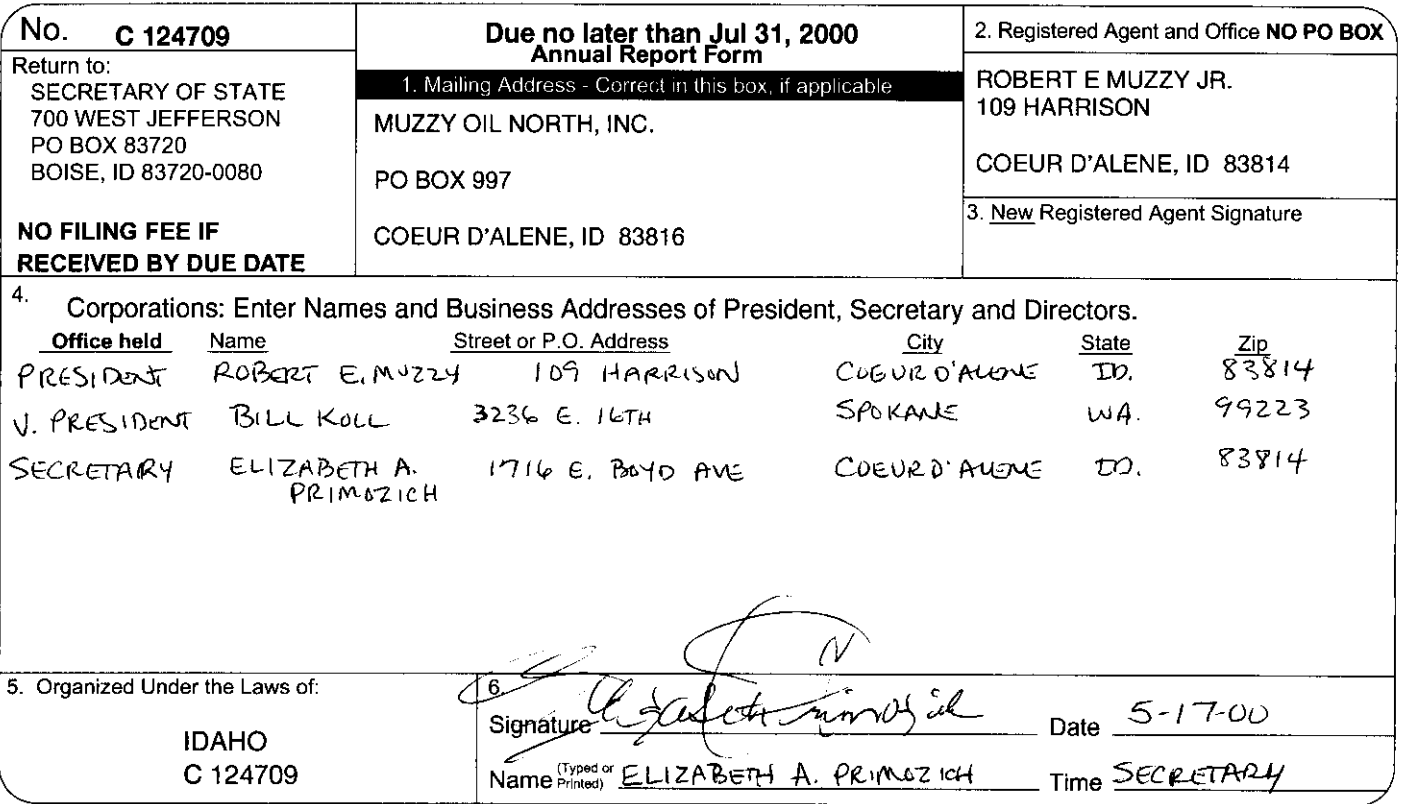 No. C 124709
Return to:
SECRETARY OF STATE
700 WEST JEFFERSON
PO BOX 83720
BOISE, ID 83720-0080
NO FILING FEE IF
RECEIVED BY DUE DATE
Due no later than Jul 31, 2000
Annual Report Form
1. Mailing Address - Correct in this box, if applicable
MUZZY OIL NORTH, INC.
PO BOX 997
COEUR D'ALENE, ID 83816
2. Registered Agent and Office NO PO BOX
ROBERT E MUZZY JR.
109 HARRISON
COEUR D'ALENE, ID 83814
3. New Registered Agent Signature
4. Corporations: Enter Names and Business Addresses of President, Secretary and Directors.
Office held Name Street or P.O. Address City State Zip
PRESIDENT ROBERT E. MUZZY 109 HARRISON COEUR D'ALENE ID. 83814
V. PRESIDENT BILL KOLL 3236 E. 16TH SPOKANE WA. 99223
SECRETARY ELIZABETH A. 1716 E. BOYD AVE COEUR D'ALENE ID. 83814
PRIMOZICH
5. Organized Under the Laws of:
IDAHO
C 124709
6.
Signature Elizabeth Primozich Date 5-17-00
Name (Typed or Printed) ELIZABETH A. PRIMOZICH Time SECRETARY